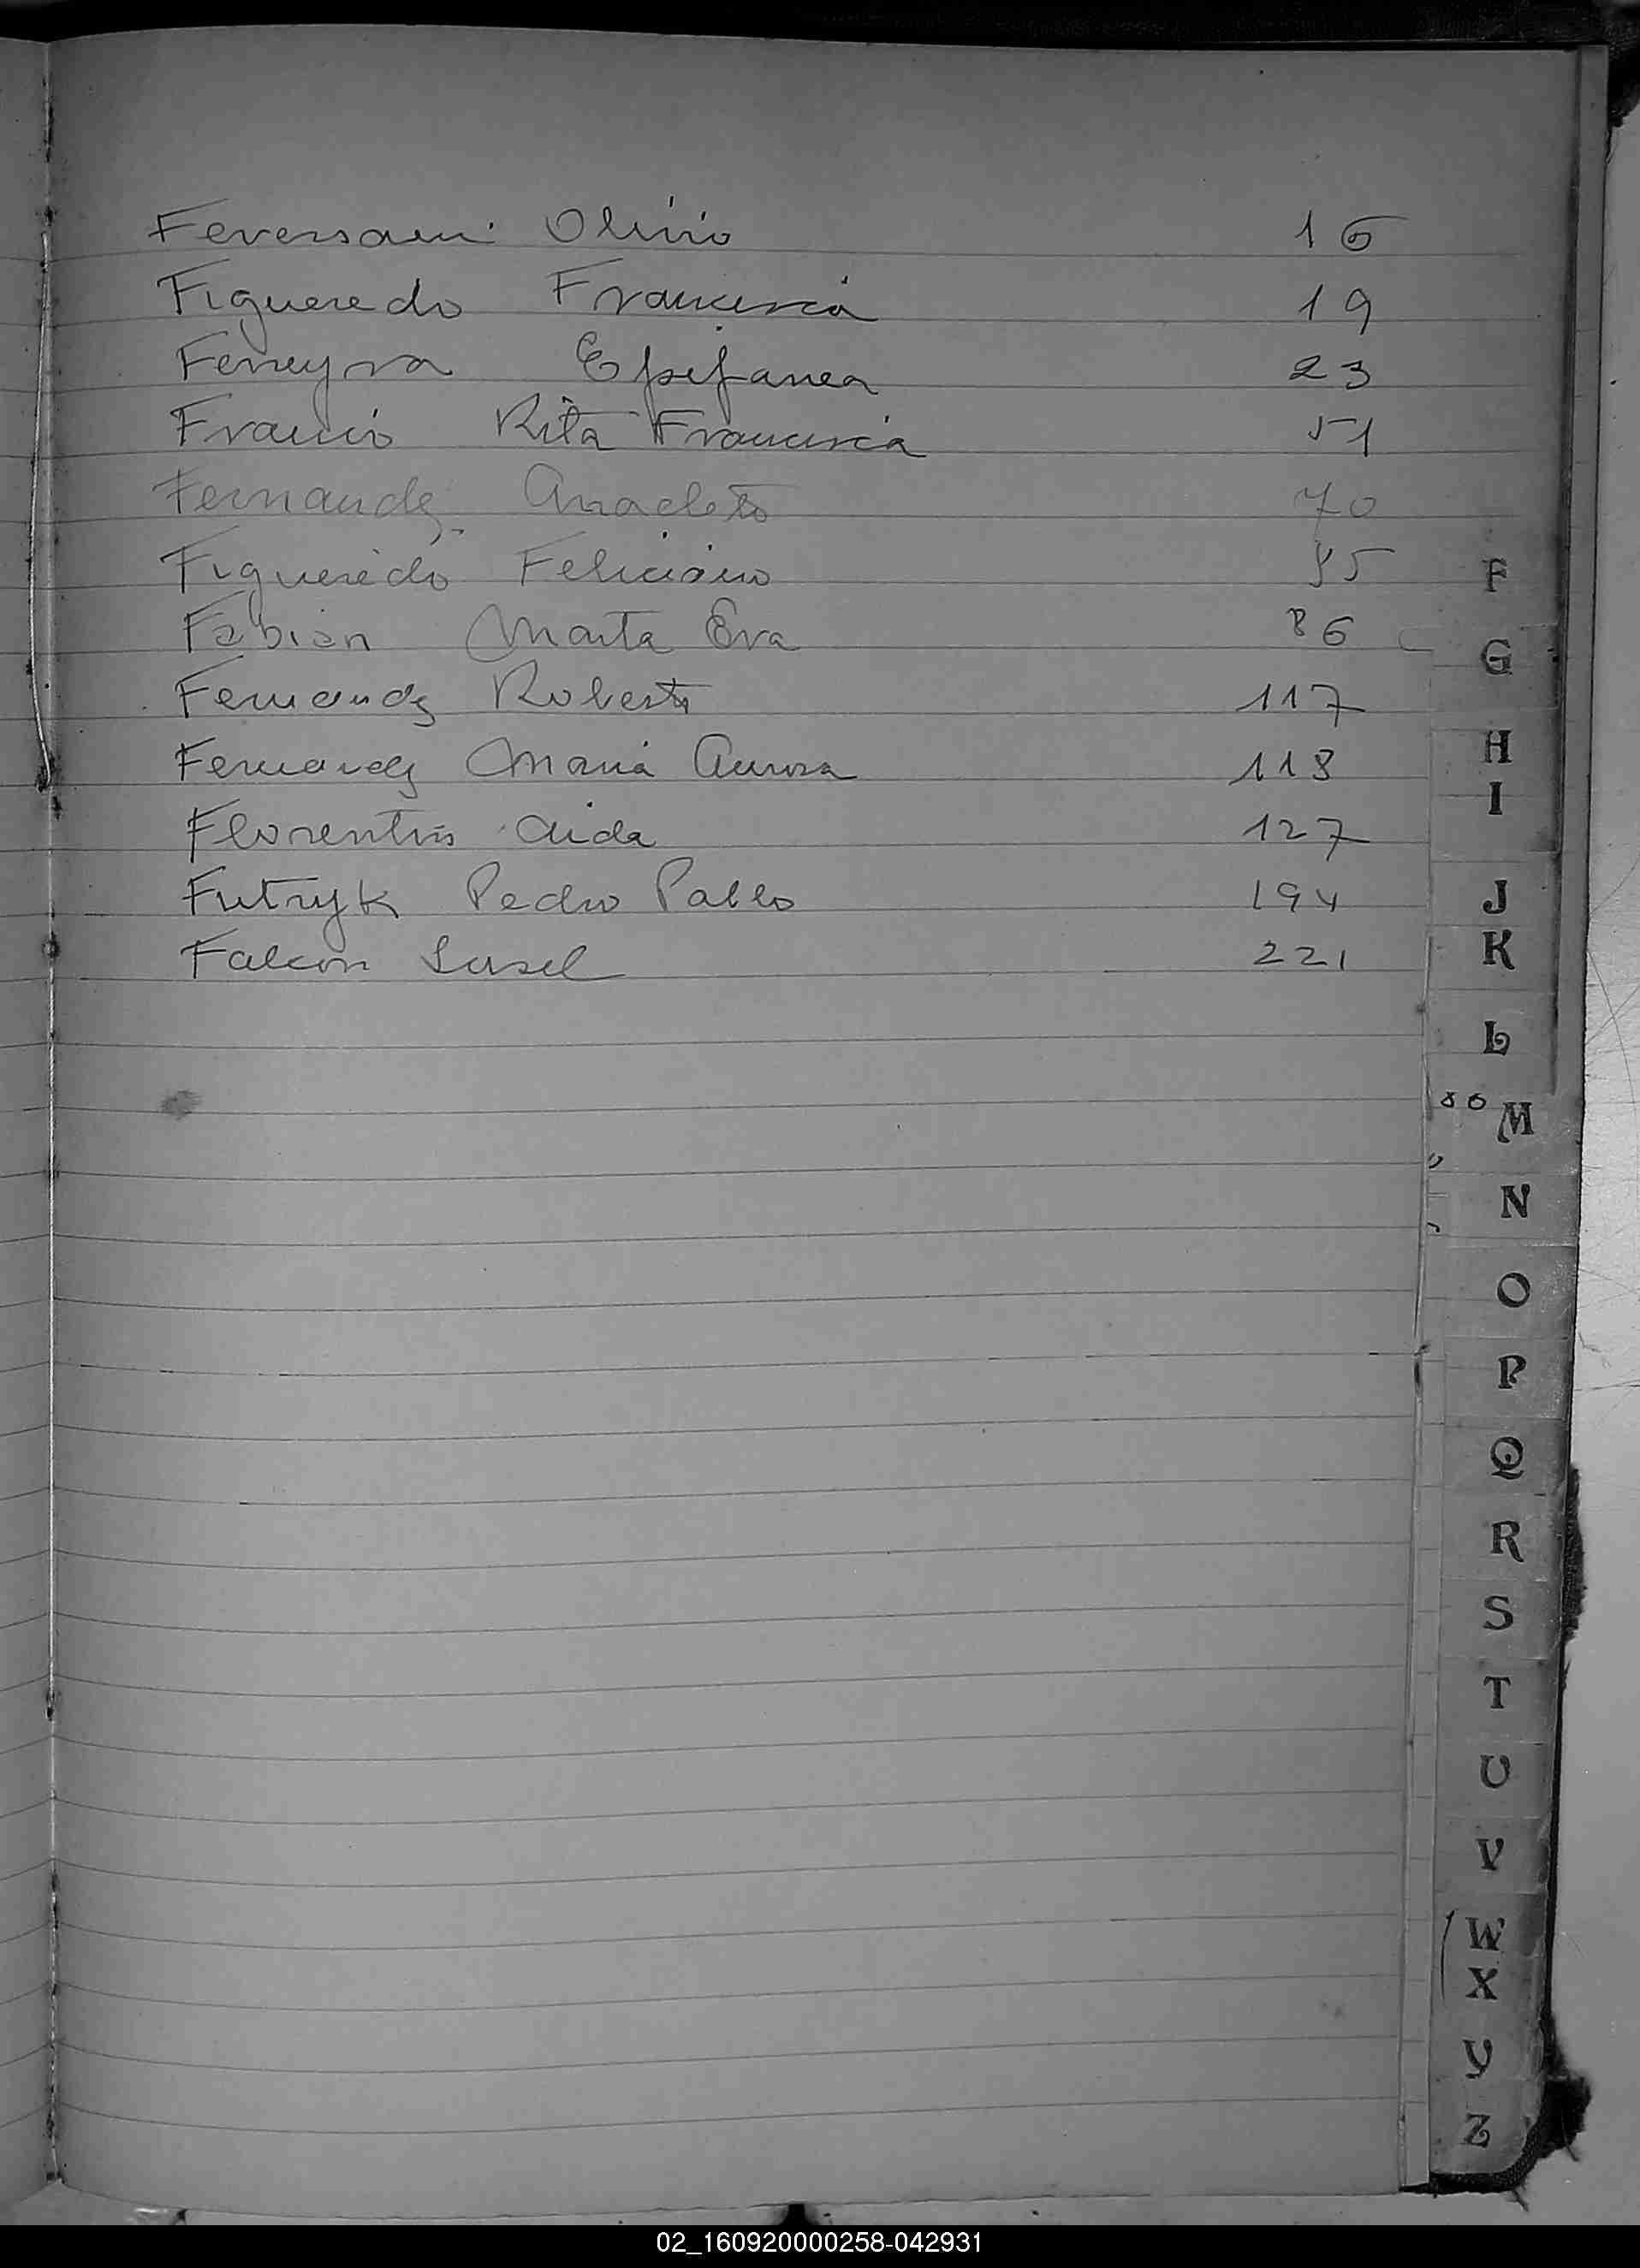 Feversani Olirio 16
Figueredo Francisca 19
Ferreyra Epifanea 23
Francis Rita Francisca 51
Fernandez Anacleto 70
Figueredo Feliciano 85
Fabian Marta Eva 86
Fernandez Roberto 117
Fernandez Maria Aurora 118
Florentin Aida 127
Futryk Pedro Pablo 194
Falcon 221
F
G
H
I
J
K
L
80 M
N
O
P
Q
R
S
T
U
V
W
X
Y
Z
02_160920000258-042931